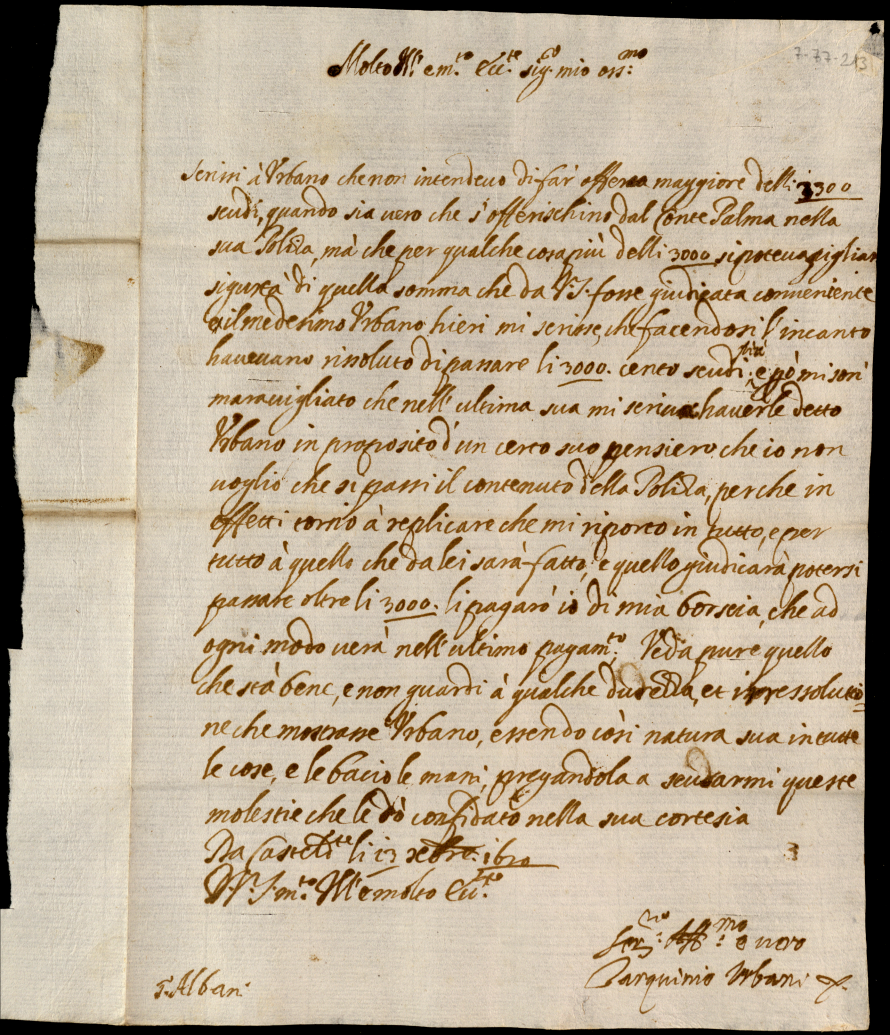 7-77-213
Molto Ill.re e m.to Ecc.te sig.r mio oss.mo
Scrissi à Urbano che non intendevo di far offerta maggiore delli 3300
scudi, quando sia vero che s'offerischino dal Conte Palma nella
sua Poliza, mà che per qualche cosa più delli 3000 si poteva pigliar
sigurtà di quella somma che da V.S. fosse giudicata conveniente
il medesimo Urbano hieri mi scrisse, che facendosi l'incanto
havevano rissoluto di passare li 3000. cento scudi. e però mi son
maravigliato che nell'ultima sua mi scriva haverle detto
Urbano in proposito d'un certo suo pensiero che io non
voglio che si passi il contenuto della Poliza, perche in
effetti torno à replicare che mi riporto in tutto, e per
tutto à quello che da lei sarà fatto, e quello giudicarà potersi
passare oltre li 3000. li pagarò io di mia borscia, che ad
ogni modo verà nell'ultimo pagam.to Veda pure quello
che stà bene, e non guardi à qualche durezza, et irressolutio=
ne che mostrasse Urbano, essendo così natura sua in tutte
le cose, e le bacio le mani, pregandola a scusarmi queste
molestie che le dò confidato nella sua cortesia
Da Casteld.te li 13 xbre. 1620
D. V. S. m.to Ill.re e molto Ecc.te
Ser.re Aff.mo e vero
Tarquinio Urbani
S. Alban.